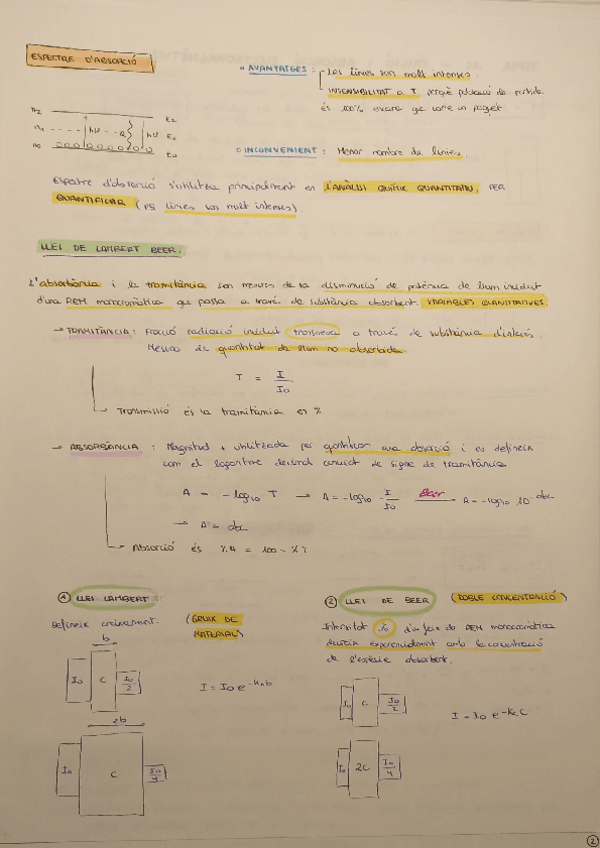 ESPECTRE D'ABSORCIÓ
• AVANTATGES: - Les línies són molt intenses
- INSENSIBILITAT a T perquè població de partida
és 100% encara que variï un poquet
n2 E2
n1 hν Q hν E1
n0 E0
• INCONVENIENT: Menor nombre de línies.
Espectre d'absorció s'utilitza principalment en L'ANÀLISI QUÍMIC QUANTITATIU, PER
QUANTIFICAR (PQ línies són molt intenses)
LLEI DE LAMBERT BEER.
L'absorbància i la tramitància són mesures de la disminució de potència de llum incident
d'una REM monocromàtica que passa a través de substància absorbent. VARIABLES QUANTITATIVES.
→ TRAMITÀNCIA: Fracció radiació incident transmesa a través de substància d'interès.
Mesura de quantitat de llum no absorbida.
T = I / I0
Transmissió és la tramitància en %
→ ABSORBÀNCIA: Magnitud + utilitzada per quantificar una absorció i es defineix
com el logaritme decimal canviat de signe de tramitància
A = -log10 T → A = -log10 I/I0 Beer → A = -log10 10 abc
→ A = abc
Absorció és %A = 100 - %T
① LLEI LAMBERT
② LLEI DE BEER (DOBLE CONCENTRACIÓ)
Defineix creixement. (GRUIX DE
MATERIAL)
Intensitat I0 d'un feix de REM monocromàtica
decreix exponencialment amb la concentració
de l'espècie absorbent.
b
I0 C I0/2
I = I0 e^-knb
2b
I0 C I0/4
I0 C I0/2
I = I0 e^-knC
I0 2C I0/4
2